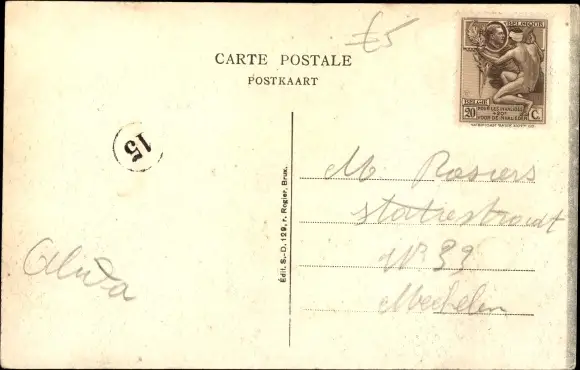 £5
CARTE POSTALE
POSTKAART
BELGIQUE
BELGIË
POUR LES INVALIDES
+20c
VOOR DE INVALIEDEN
20 C.
15
Édit. S.-D. 129, r. Rogier, Brux.
M Rosiers
statiestraat
N° 39
Mechelen